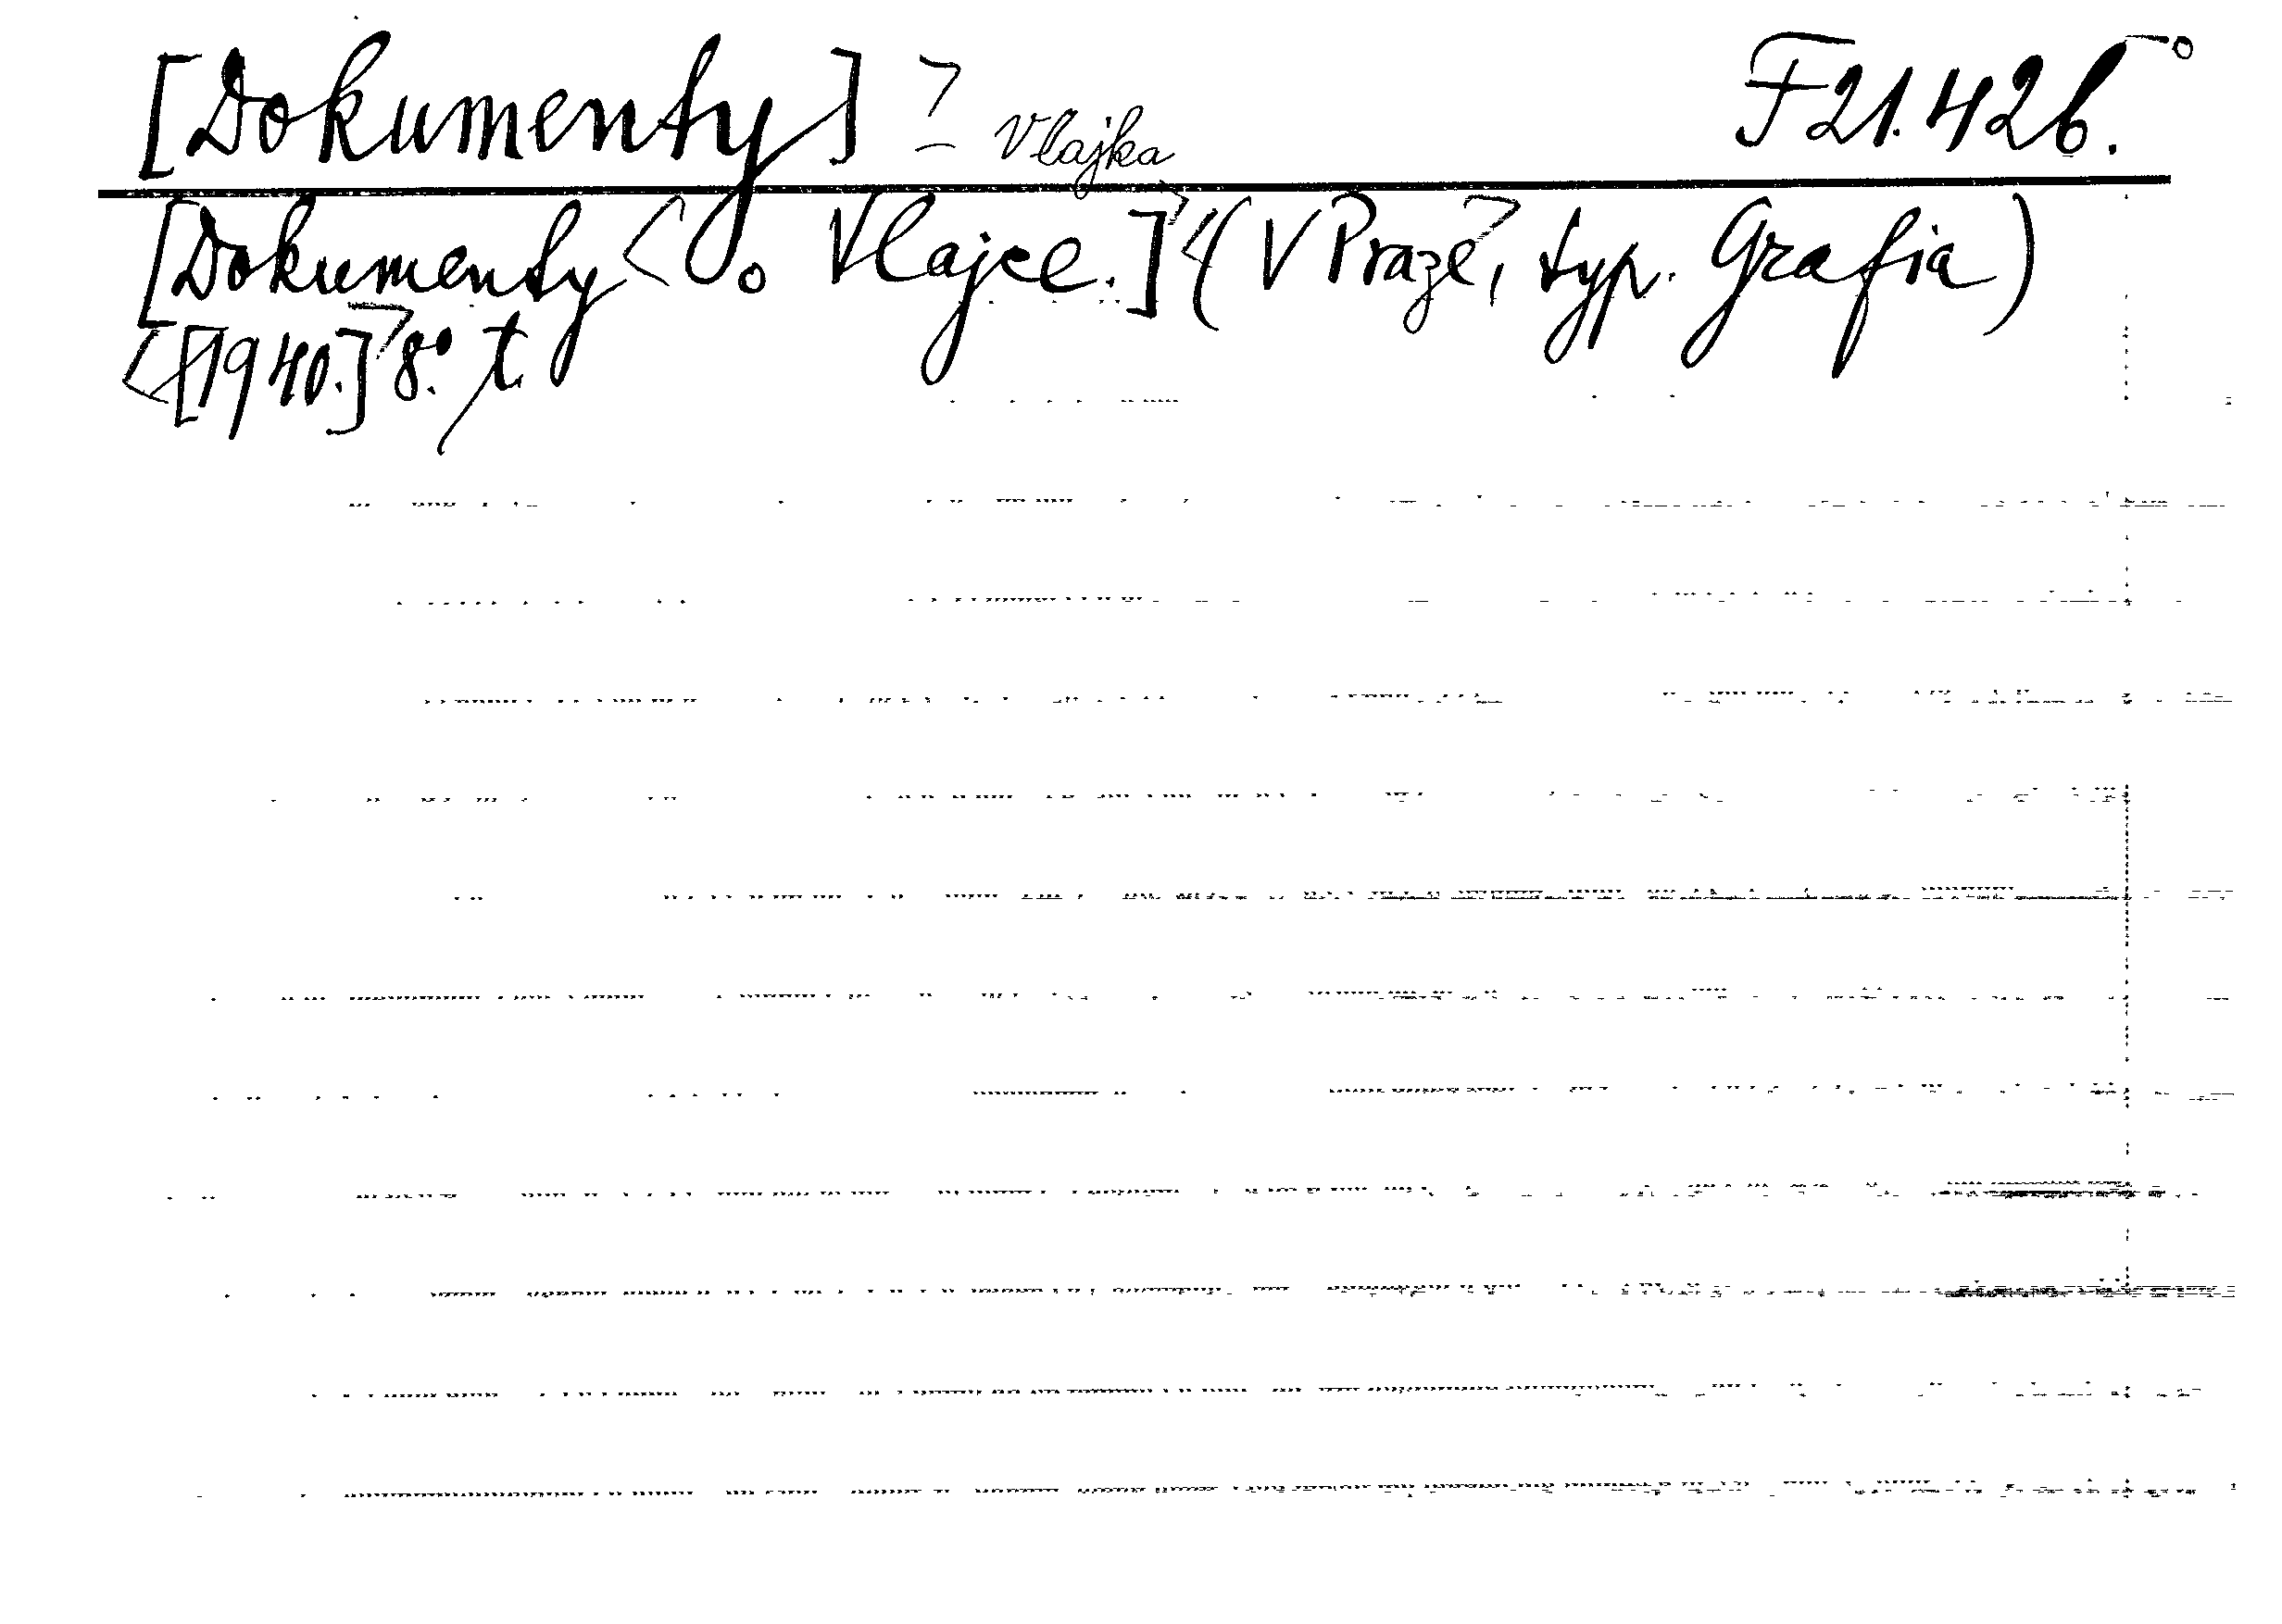 [Dokumenty] - Vlajka F 21.426.
[Dokumenty o Vlajce.] (V Praze, typ. Grafia)
[1940.] 8.° t.